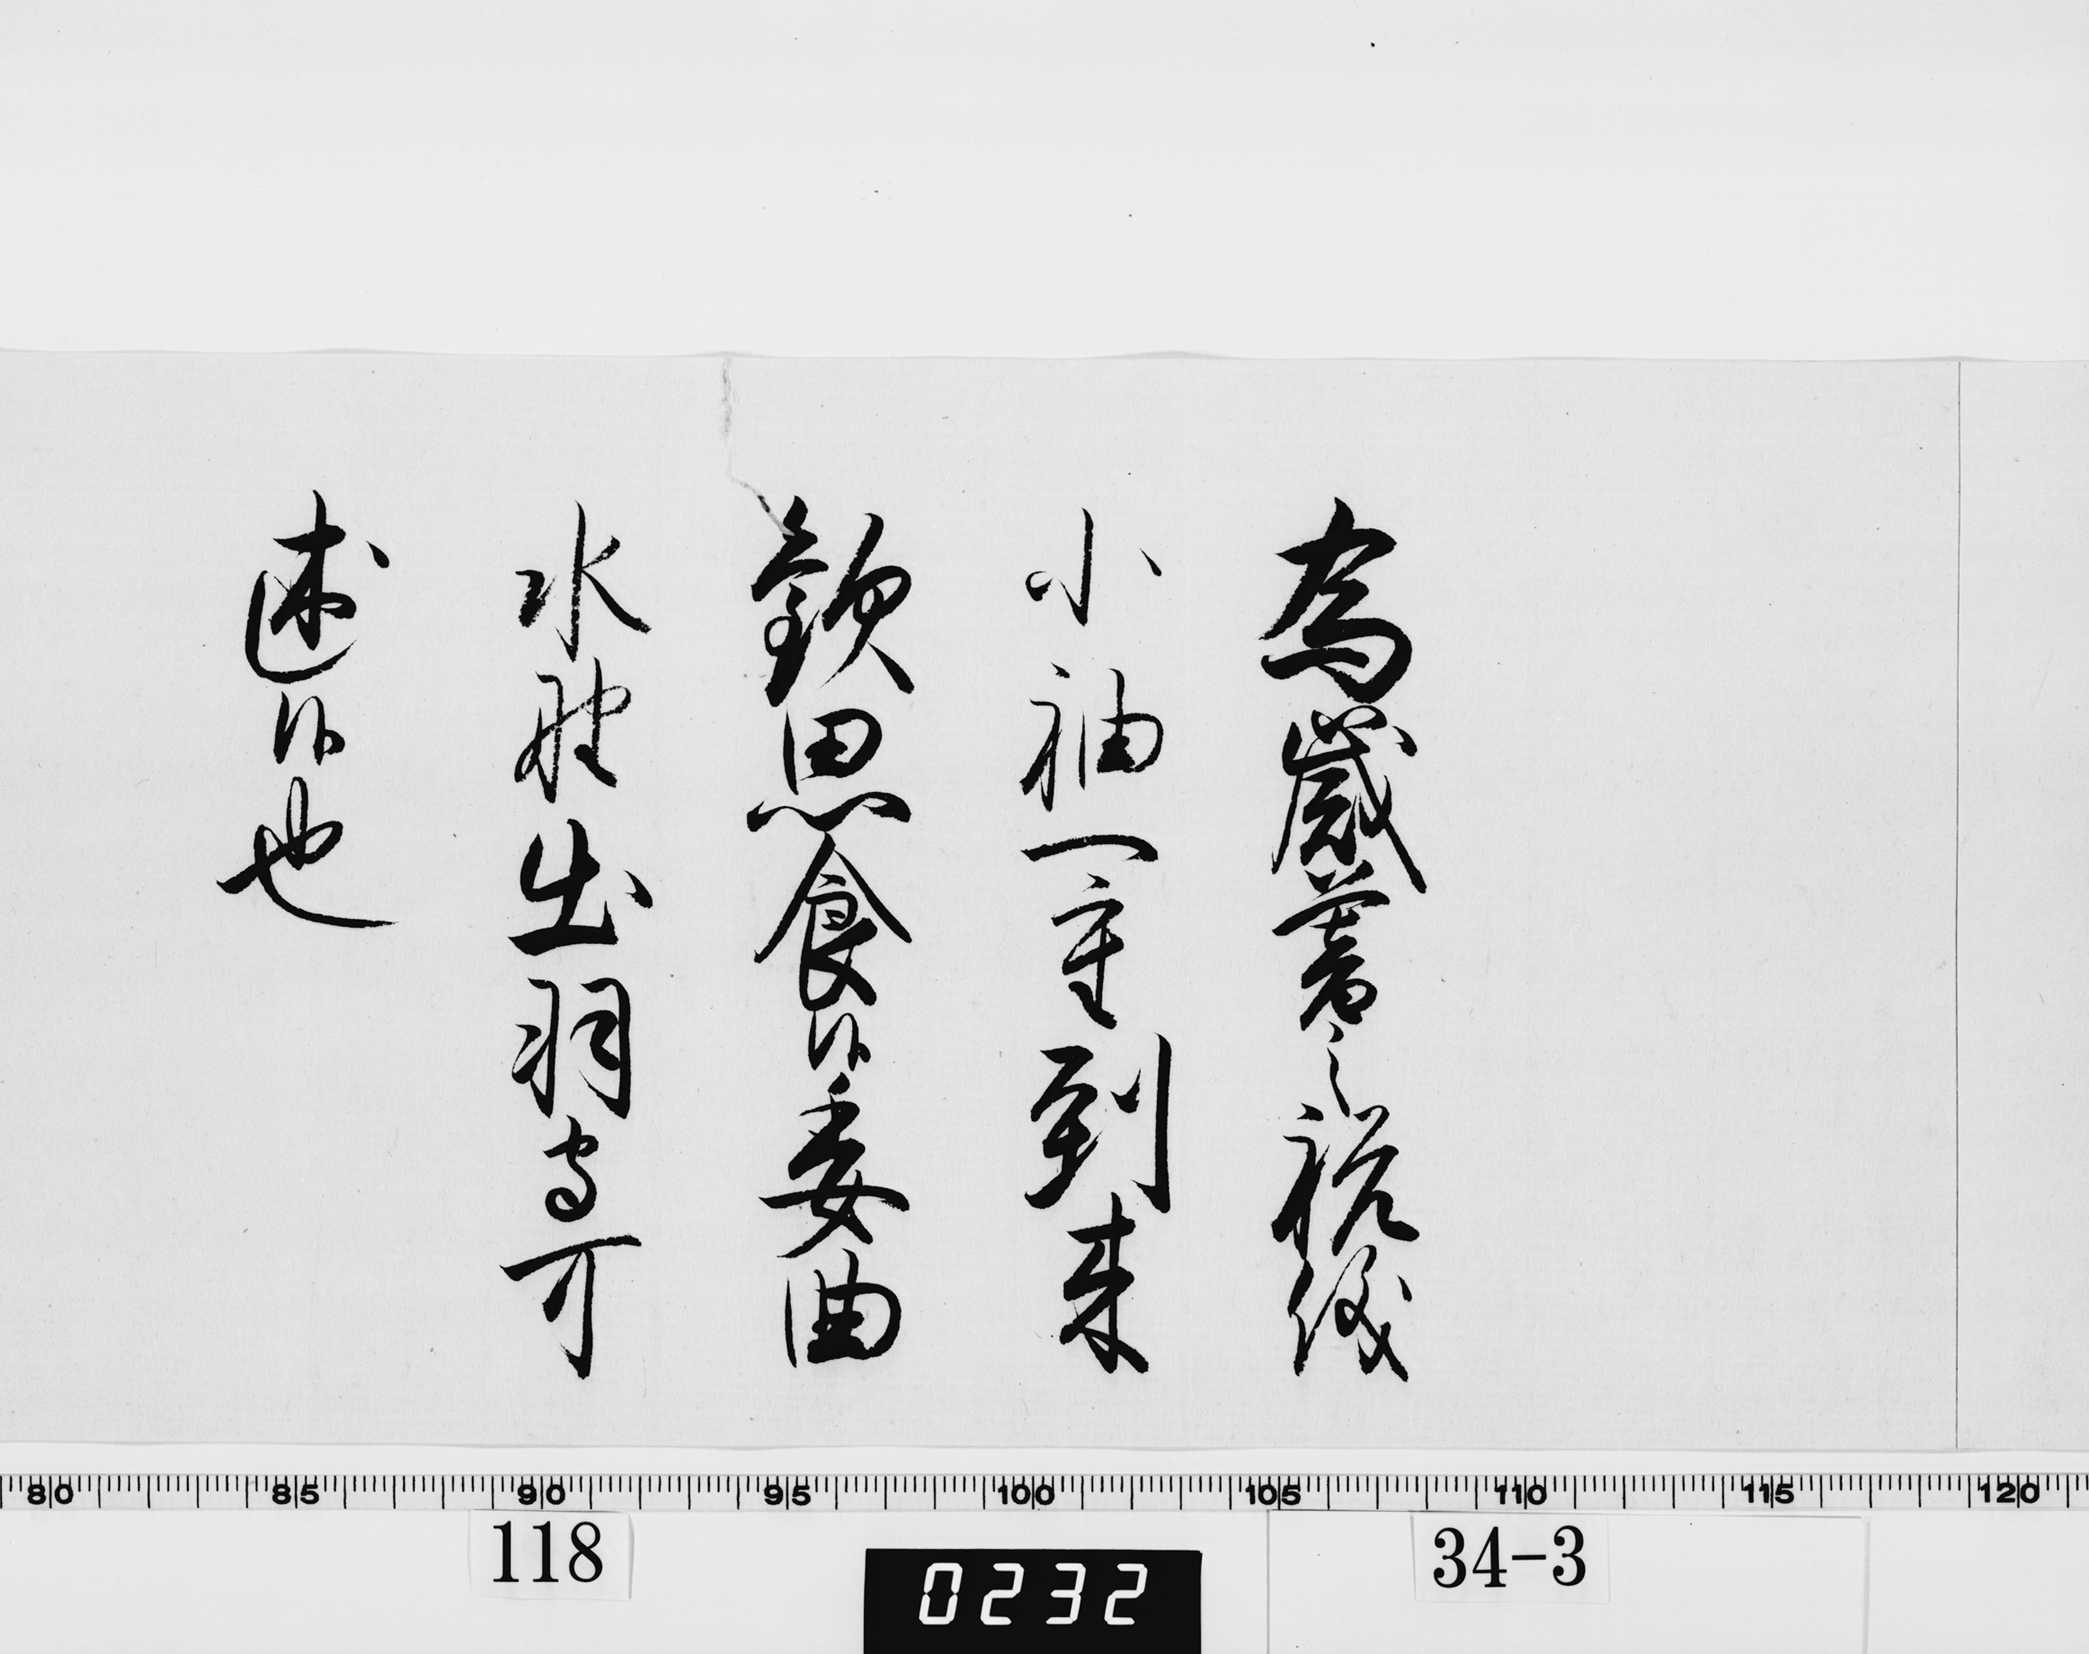 為歳暮之祝儀
小袖一重到来
歓思食候委曲
水野出羽守可
述候也
80 85 90 95 100 105 110 115 120
118
0232
34-3